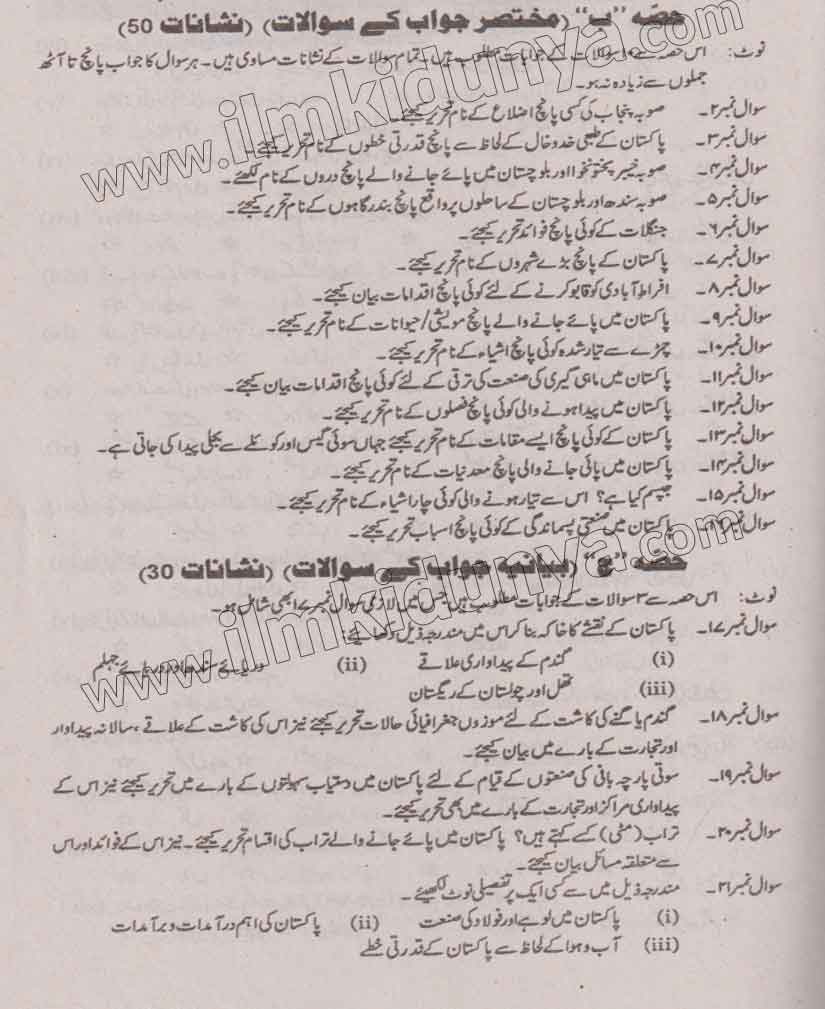 حصّہ ”ب“ (مختصر جواب کے سوالات) (نشانات 50)
نوٹ: اس حصہ سے ۱۰ سوالات کے جوابات مطلوب ہیں۔ تمام سوالات کے نشانات مساوی ہیں۔ ہر سوال کا جواب پانچ تا آٹھ
جملوں سے زیادہ نہ ہو۔
سوال نمبر۲۔ صوبہ پنجاب کی کسی پانچ اضلاع کے نام تحریر کیجئے۔
سوال نمبر۳۔ پاکستان کے طبعی خدوخال کے لحاظ سے پانچ قدرتی خطوں کے نام تحریر کیجئے۔
سوال نمبر۴۔ صوبہ خیبر پختونخوا اور بلوچستان میں پائے جانے والے پانچ دروں کے نام لکھئے۔
سوال نمبر۵۔ صوبہ سندھ اور بلوچستان کے ساحلوں پر واقع پانچ بندرگاہوں کے نام تحریر کیجئے۔
سوال نمبر۶۔ جنگلات کے کوئی پانچ فوائد تحریر کیجئے۔
سوال نمبر۷۔ پاکستان کے پانچ بڑے شہروں کے نام تحریر کیجئے۔
سوال نمبر۸۔ افراطِ آبادی کو قابو کرنے کے لئے کوئی پانچ اقدامات بیان کیجئے۔
سوال نمبر۹۔ پاکستان میں پائے جانے والے پانچ مویشی/حیوانات کے نام تحریر کیجئے۔
سوال نمبر۱۰۔ چمڑے سے تیار شدہ کوئی پانچ اشیاء کے نام تحریر کیجئے۔
سوال نمبر۱۱۔ پاکستان میں ماہی گیری کی صنعت کی ترقی کے لئے کوئی پانچ اقدامات بیان کیجئے۔
سوال نمبر۱۲۔ پاکستان میں پیدا ہونے والی کوئی پانچ فصلوں کے نام تحریر کیجئے۔
سوال نمبر۱۳۔ پاکستان کے کوئی پانچ ایسے مقامات کے نام تحریر کیجئے جہاں سوئی گیس اور کوئلے سے بجلی پیدا کی جاتی ہے۔
سوال نمبر۱۴۔ پاکستان میں پائی جانے والی پانچ معدنیات کے نام تحریر کیجئے۔
سوال نمبر۱۵۔ جپسم کیا ہے؟ اس سے تیار ہونے والی کوئی چار اشیاء کے نام تحریر کیجئے۔
سوال نمبر۱۶۔ پاکستان میں صنعتی پسماندگی کے کوئی پانچ اسباب تحریر کیجئے۔
حصّہ ”ج“ (بیانیہ جواب کے سوالات) (نشانات 30)
نوٹ: اس حصہ سے ۳ سوالات کے جوابات مطلوب ہیں جس میں لازمی سوال نمبر ۱۷ بھی شامل ہو۔
سوال نمبر۱۷۔ پاکستان کے نقشے کا خاکہ بنا کر اس میں مندرجہ ذیل دکھائیے:
(i) گندم کے پیداواری علاقے (ii) دریائے سندھ اور دریائے جہلم
(iii) تھل اور چولستان کے ریگستان
سوال نمبر۱۸۔ گندم یا گنے کی کاشت کے لئے موزوں جغرافیائی حالات تحریر کیجئے نیز اس کی کاشت کے علاقے، سالانہ پیداوار
اور تجارت کے بارے میں بیان کیجئے۔
سوال نمبر۱۹۔ سوتی پارچہ بافی کی صنعتوں کے قیام کے لئے پاکستان میں دستیاب سہولتوں کے بارے میں تحریر کیجئے نیز اس کے
پیداواری مراکز اور تجارت کے بارے میں بھی تحریر کیجئے۔
سوال نمبر۲۰۔ تراب (مٹی) کسے کہتے ہیں؟ پاکستان میں پائے جانے والے تراب کی اقسام تحریر کیجئے۔ نیز اس کے فوائد اور اس
سے متعلقہ مسائل بیان کیجئے۔
سوال نمبر۲۱۔ مندرجہ ذیل میں سے کسی ایک پر تفصیلی نوٹ لکھئیے۔
(i) پاکستان میں لوہے اور فولاد کی صنعت (ii) پاکستان کی اہم درآمدات و برآمدات
(iii) آب و ہوا کے لحاظ سے پاکستان کے قدرتی خطے
www.ilmkidunya.com
www.ilmkidunya.com
www.ilmkidunya.com